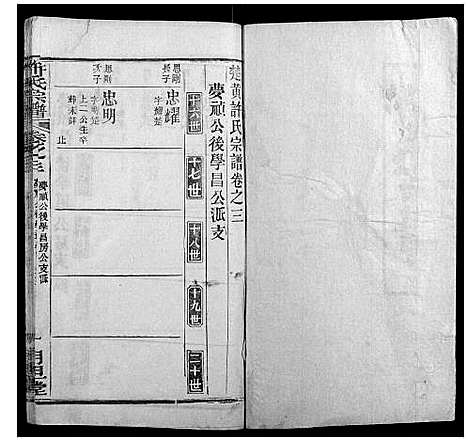 楚黃許氏宗譜卷之三
夢頑公後學昌公派支
十六世
十七世
十八世
十九世
二十世
思剛
長子
忠耀
字耀楚
思剛
次子
忠明
字明楚
上二公生卒
葬未詳
止
許氏宗譜
卷之三
夢頑公後學昌房公支派